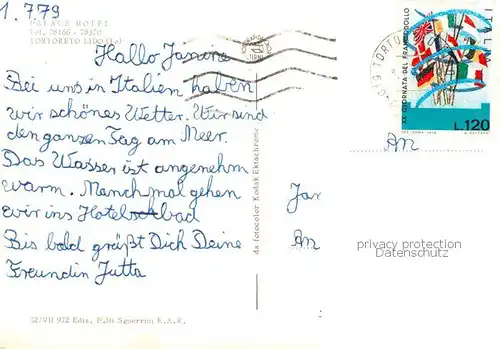 1.7.79
PALACE HOTEL
Tel. 78166 - 78370
TORTORETO LIDO (Te)
Hallo Janine
Bei uns in Italien haben
wir schönes Wetter. Wir sind
den ganzen Tag am Meer.
Das Wasser ist angenehm
warm. Manchmal gehen
wir ins Hotelbad
Bis bald grüßt Dich Deine
Freundin Jutta
52/VII 972 Ediz. F.lli Sguerrini E.A.R.
da fotocolor Kodak Ektachrome
XX GIORNATA DEL FRANCOBOLLO
ITALIA
L.120
An
Jan
An
privacy protection
Datenschutz